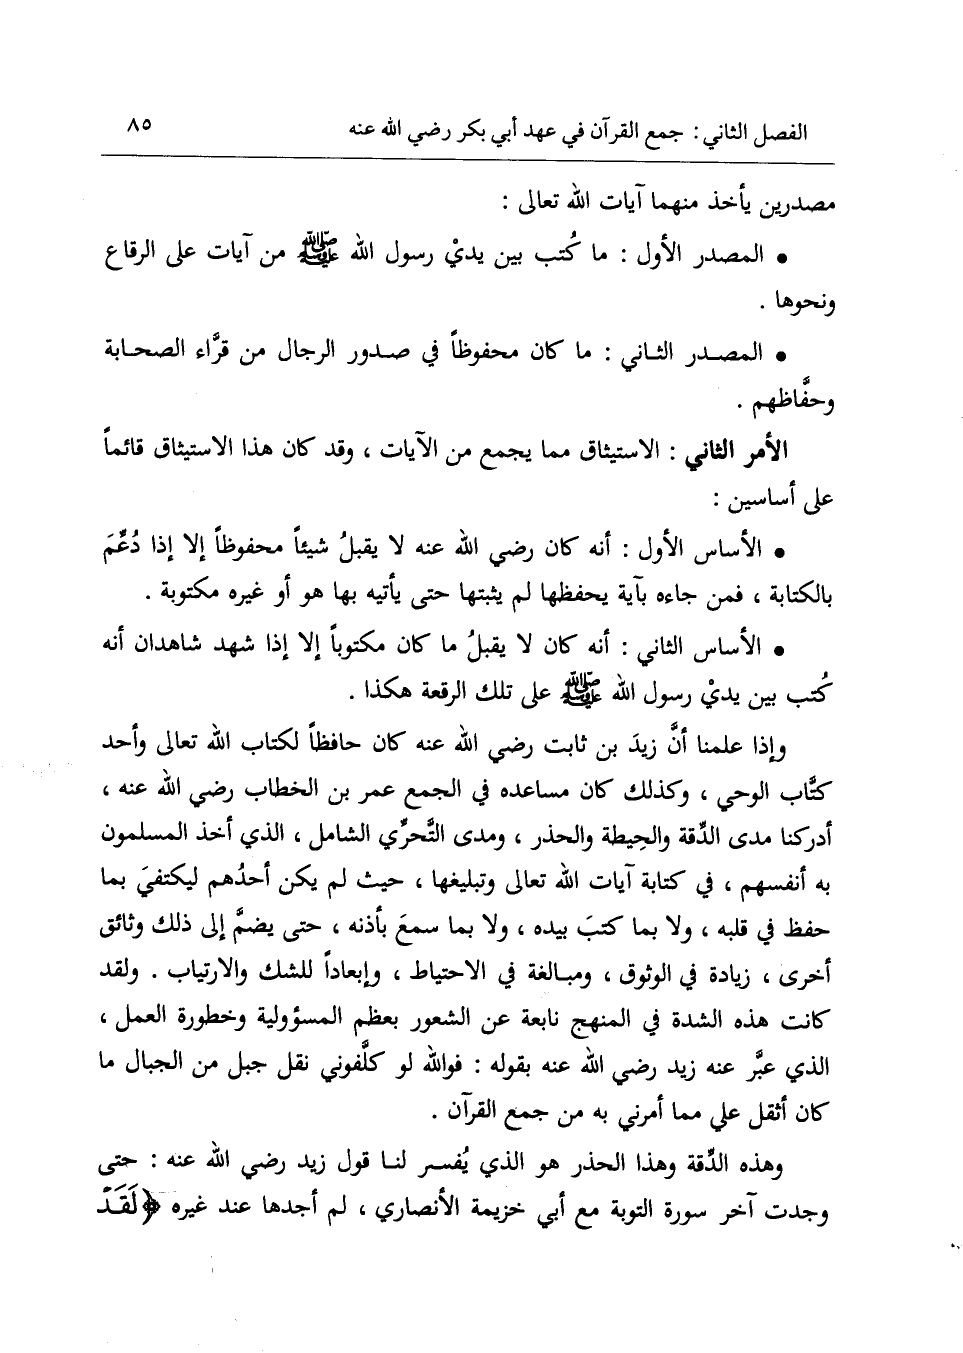 الفصل الثاني : جمع القرآن في عهد أبي بكر رضي الله عنه ٨٥
مصدرين يأخذ منهما آيات الله تعالى :
• المصدر الأول : ما كُتب بين يديْ رسول الله ﷺ من آيات على الرقاع
ونحوها .
• المصدر الثاني : ما كان محفوظاً في صدور الرجال من قرَّاء الصحابة
وحفَّاظهم .
الأمر الثاني : الاستيثاق مما يجمع من الآيات ، وقد كان هذا الاستيثاق قائماً
على أساسين :
• الأساس الأول : أنه كان رضي الله عنه لا يقبلُ شيئاً محفوظاً إلا إذا دُعِّمَ
بالكتابة ، فمن جاءه بآية يحفظها لم يثبتها حتى يأتيه بها هو أو غيره مكتوبة .
• الأساس الثاني : أنه كان لا يقبلُ ما كان مكتوباً إلا إذا شهد شاهدان أنه
كُتب بين يديْ رسول الله ﷺ على تلك الرقعة هكذا .
وإذا علمنا أنَّ زيدَ بن ثابت رضي الله عنه كان حافظاً لكتاب الله تعالى وأحد
كتَّاب الوحي ، وكذلك كان مساعده في الجمع عمر بن الخطاب رضي الله عنه ،
أدركنا مدى الدِّقة والحِيطة والحذر ، ومدى التَّحرِّي الشامل ، الذي أخذ المسلمون
به أنفسهم ، في كتابة آيات الله تعالى وتبليغها ، حيث لم يكن أحدُهم ليكتفيَ بما
حفظ في قلبه ، ولا بما كتبَ بيده ، ولا بما سمعَ بأذنه ، حتى يضمَّ إلى ذلك وثائق
أخرى ، زيادة في الوثوق ، ومبالغة في الاحتياط ، وإبعاداً للشك والارتياب . ولقد
كانت هذه الشدة في المنهج نابعة عن الشعور بعظم المسؤولية وخطورة العمل ،
الذي عبَّر عنه زيد رضي الله عنه بقوله : فوالله لو كلَّفوني نقل جبل من الجبال ما
كان أثقل علي مما أمرني به من جمع القرآن .
وهذه الدِّقة وهذا الحذر هو الذي يُفسر لنا قول زيد رضي الله عنه : حتى
وجدت آخر سورة التوبة مع أبي خزيمة الأنصاري ، لم أجدها عند غيره ﴿لَقَدْ